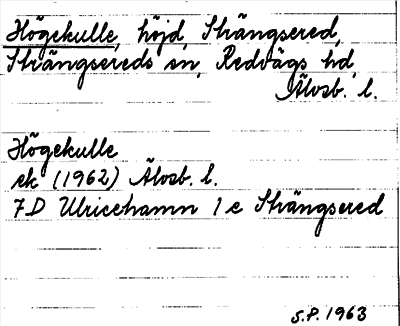 Högekulle, höjd, Strängsered,
Strängsereds sn, Redvägs hd,
Älvsb. l.
Högekulle
ek (1962) Älvsb. l.
7D Ulricehamn 1e Strängsered
S.P. 1963